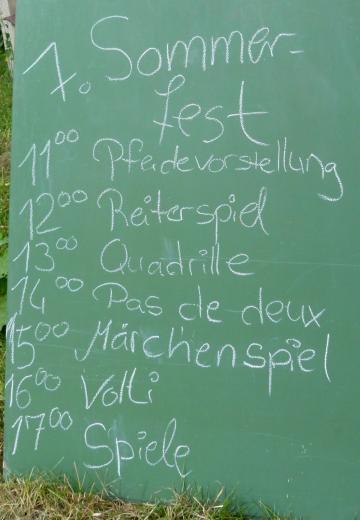 1. Sommer-
fest
11⁰⁰ Pferdevorstellung
12⁰⁰ Reiterspiel
13⁰⁰ Quadrille
14⁰⁰ Pas de deux
15⁰⁰ Märchenspiel
16⁰⁰ Volti
17⁰⁰ Spiele